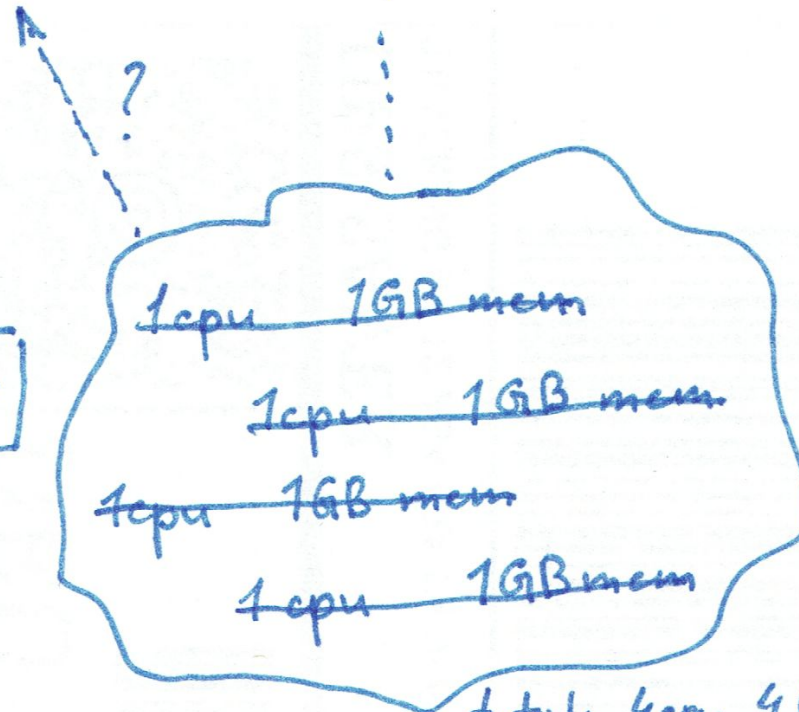 ?
1cpu 1GB mem
1cpu 1GB mem
1cpu 1GB mem
1cpu 1GB mem